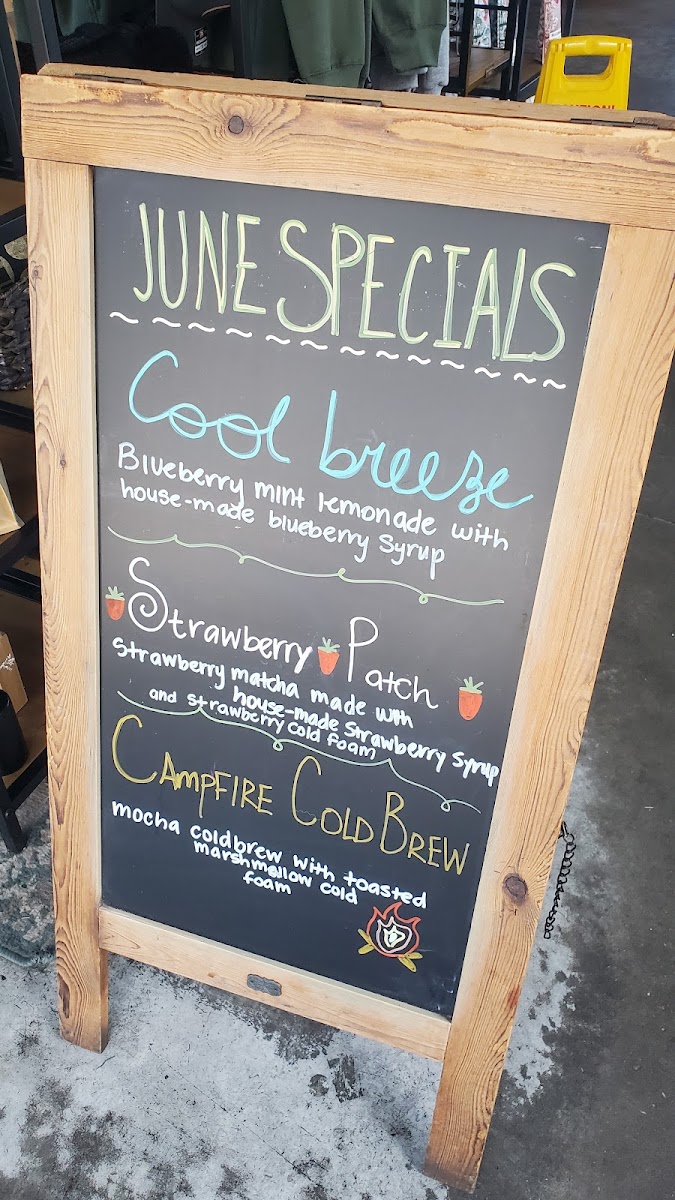 JUNE SPECIALS
Cool breeze
Blueberry mint lemonade with
house-made blueberry syrup
Strawberry Patch
Strawberry matcha made with
house-made Strawberry Syrup
and strawberry cold foam
CAMPFIRE COLD BREW
mocha coldbrew with toasted
marshmellow cold
foam